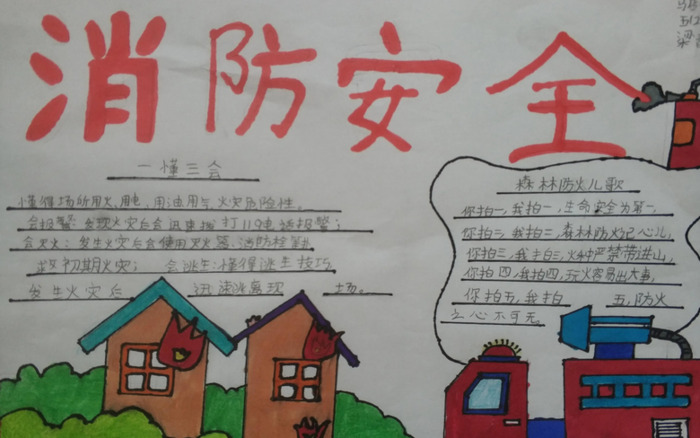 消防安全
一懂三会
懂得场所用火、用电、用油、用气、火灾危险性。
会报警：发现火灾后会迅速拨打119电话报警；
会灭火：发生火灾后会使用灭火器、消防栓等
救初期火灾； 会逃生：懂得逃生技巧
发生火灾后 迅速逃离现 场。
森林防火儿歌
你拍一，我拍一，生命安全为第一，
你拍二，我拍二，森林防火记心儿，
你拍三，我拍三，火种严禁带进山，
你拍四，我拍四，玩火容易出大事，
你拍五，我拍 五，防火
之心不可无。
梁